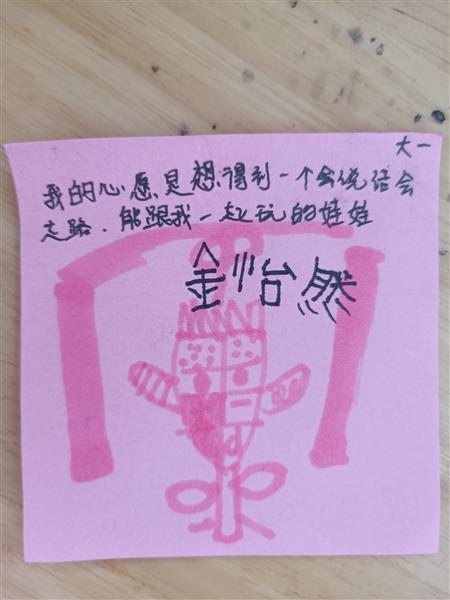 大一
我的心愿是想得到一个会说话会
走路.能跟我一起玩的娃娃
金怡然